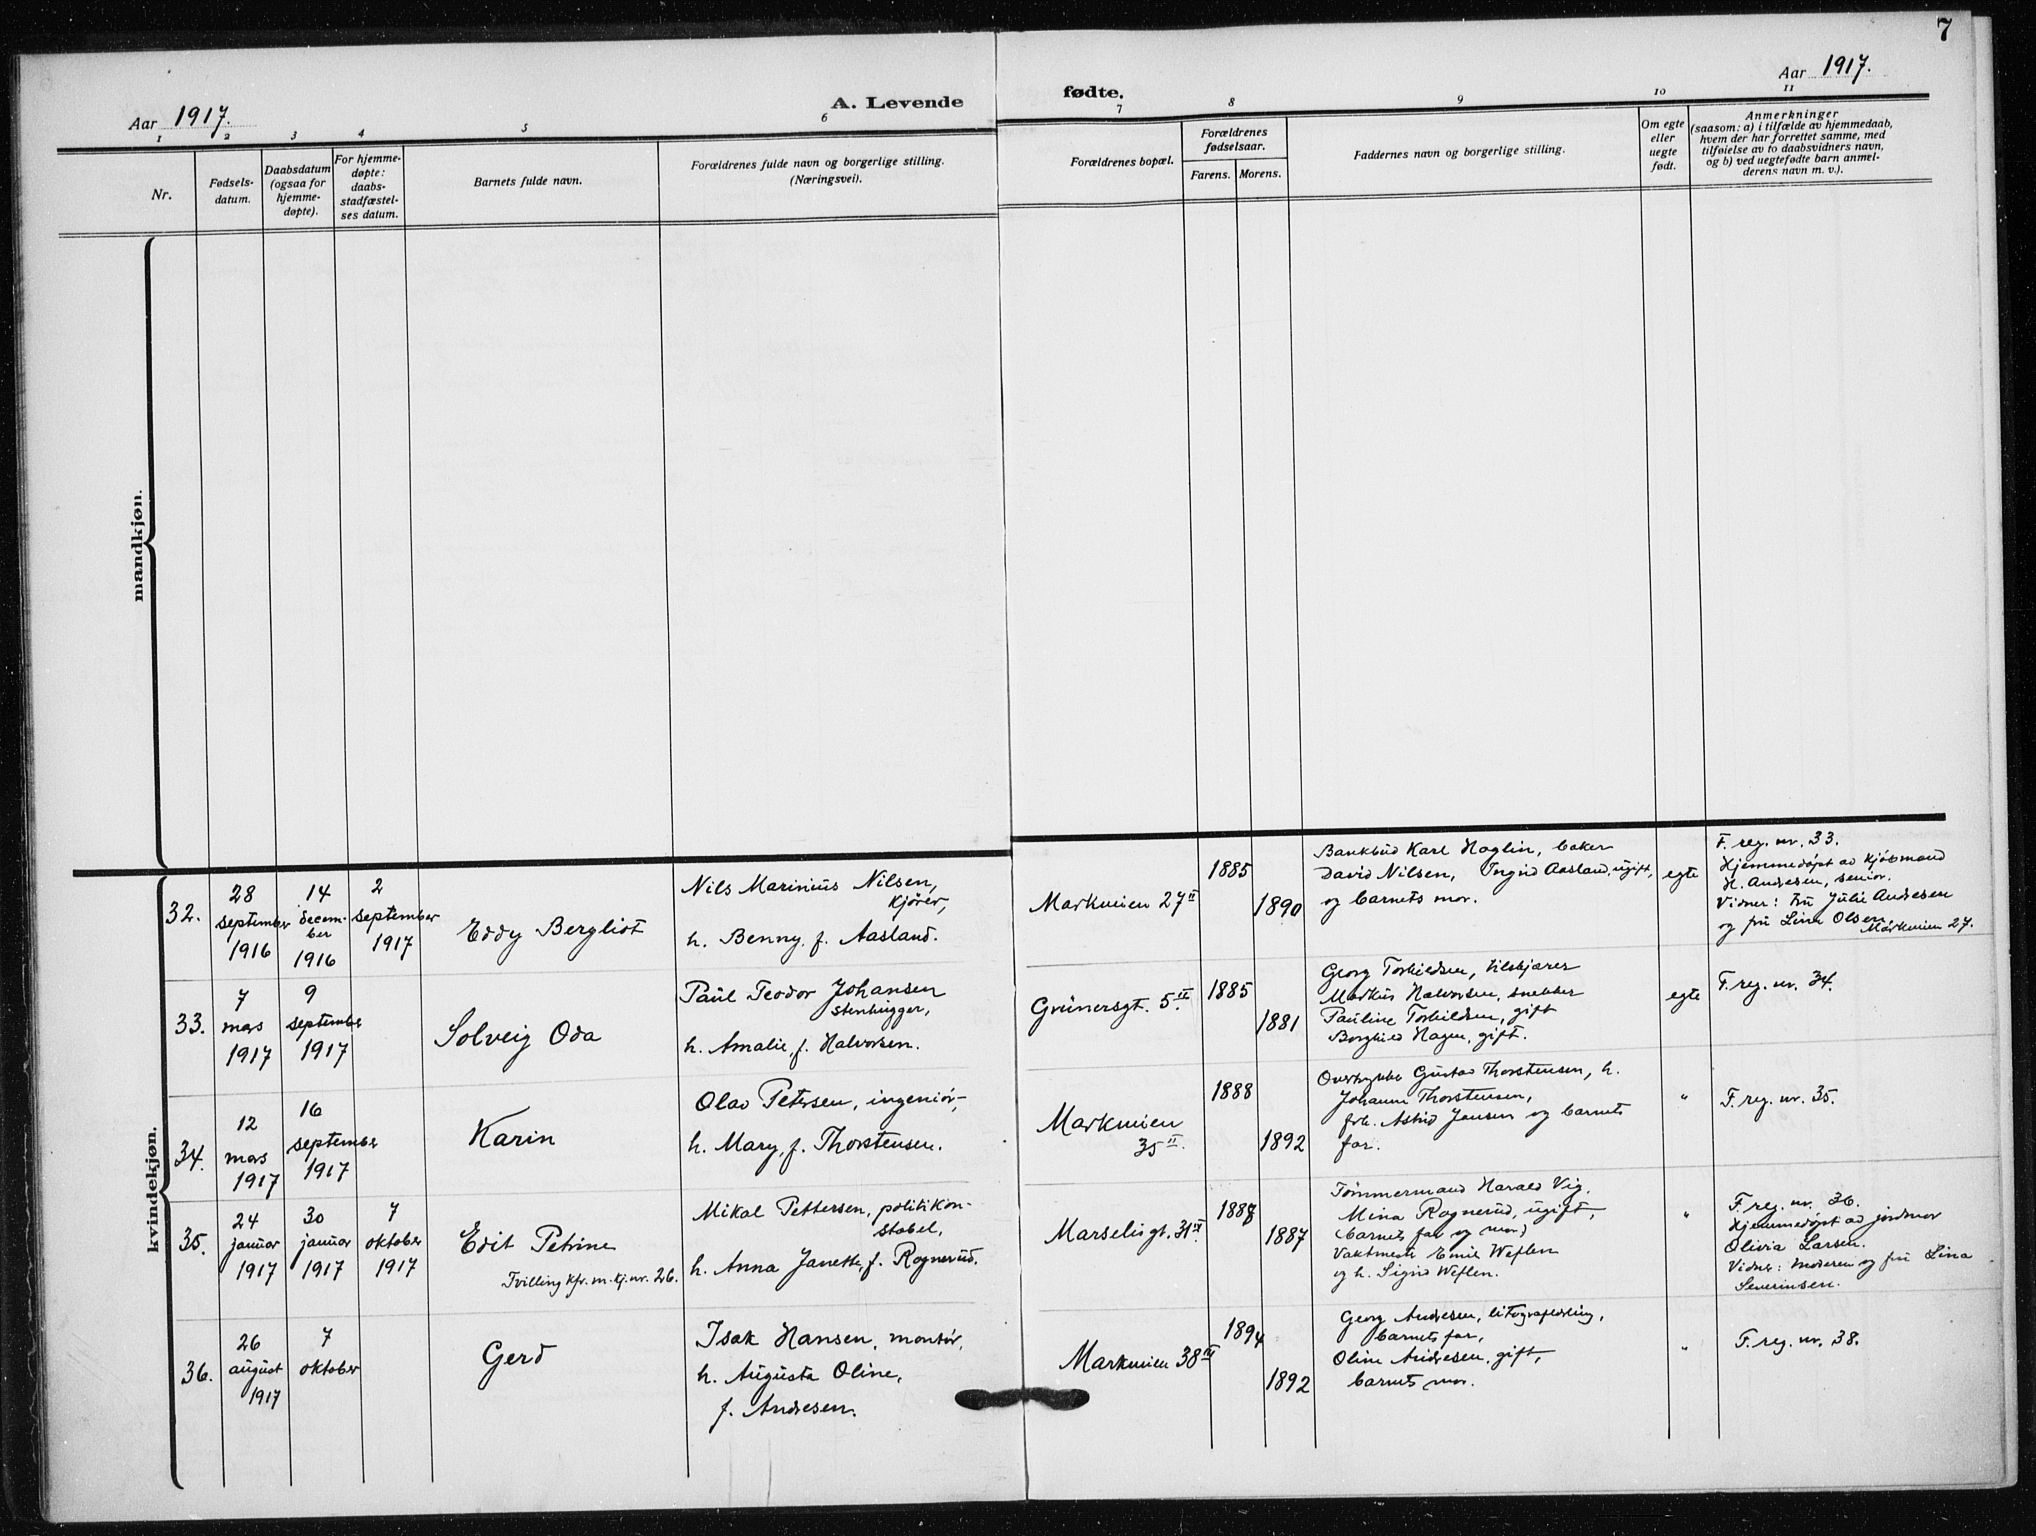 7
Aar 1917.
A. Levende
fødte.
Aar 1917.
1 2 3 4 5 6 7 8 9 10 11
Nr.
Fødsels-
datum.
Daabsdatum
(ogsaa for
hjemme-
døpte).
For hjemme-
døpte:
daabs-
stadfæstel-
ses datum.
Barnets fulde navn.
Forældrenes fulde navn og borgerlige stilling.
(Næringsvei).
Forældrenes bopæl.
Forældrenes
fødselsaar.
Farens. Morens.
Faddernes navn og borgerlige stilling.
Om egte
eller
uegte
født.
Anmerkninger
(saasom: a) i tilfælde av hjemmedaab,
hvem der har forrettet samme, med
tilføielse av to daabsvidners navn,
og b) ved uegtefødte barn anmel-
derens navn m. v.).
mandkjøn.
kvindekjøn.
32.
28
september
1916
14
decem-
ber
1916
2
september
1917
Eddy Bergliot
Nils Marinius Nilsen,
kjører,
h. Benny, f. Aasland.
Markveien 27 II
1885
1890
Bankbud Karl Haglin, baker
David Nilsen, Ingrid Aasland, ugift,
og barnets mor.
egte
F. reg. nr. 33.
Hjemmedøpt av kjøbmand
H. Andresen, senior.
Vidner: fru Julie Andresen
og fru Lina Olsen
Markveien 27.
33.
7
mars
1917
9
september
1917
Solveig Oda
Paul Teodor Johansen
stenhugger,
h. Amalie, f. Halvorsen.
Grünersgt. 5 II.
1885
1881
Georg Torkildsen,
Markus Halvorsen, snekker
Pauline Torkildsen, gift
Borghild Hagen, gift.
egte
F. reg. nr. 34.
34.
12
mars
1917
16
september
1917
Karin
Olav Petersen, ingeniør,
h. Mary, f. Thorstensen.
Markveien
35 II.
1888
1892
Gustav Thorstensen, h.
Johanne Thorstensen,
frk. Astrid Jensen og barnets
far.
"
F. reg. nr. 35.
35.
24
januar
1917
30
januar
1917
7
oktober
1917
Edit Petrine
Tvilling kfr. m. kj. nr. 26.
Mikal Pettersen, politikon-
stabel,
h. Anna Janette, f. Rognerud.
Marselisgt. 31 IV.
1888
1887
Tømmermand Harald Vig,
Mina Rognerud, ugift,
(barnets far og mor)
Vaktmester Emil Weflen
og h. Sigrid Weflen.
"
F. reg. nr. 36.
Hjemmedøpt av jordmor
Olivia Larsen.
Vidner: moderen og fru Lina
Severinsen.
36.
26
august
1917
7
oktober
Gerd
Isak Hansen, montør,
h. Augusta Oline,
f. Andresen.
Markveien 38 III
1894
1892
Georg Andresen,
barnets far,
Oline Andresen, gift,
barnets mor.
"
F. reg. nr. 38.